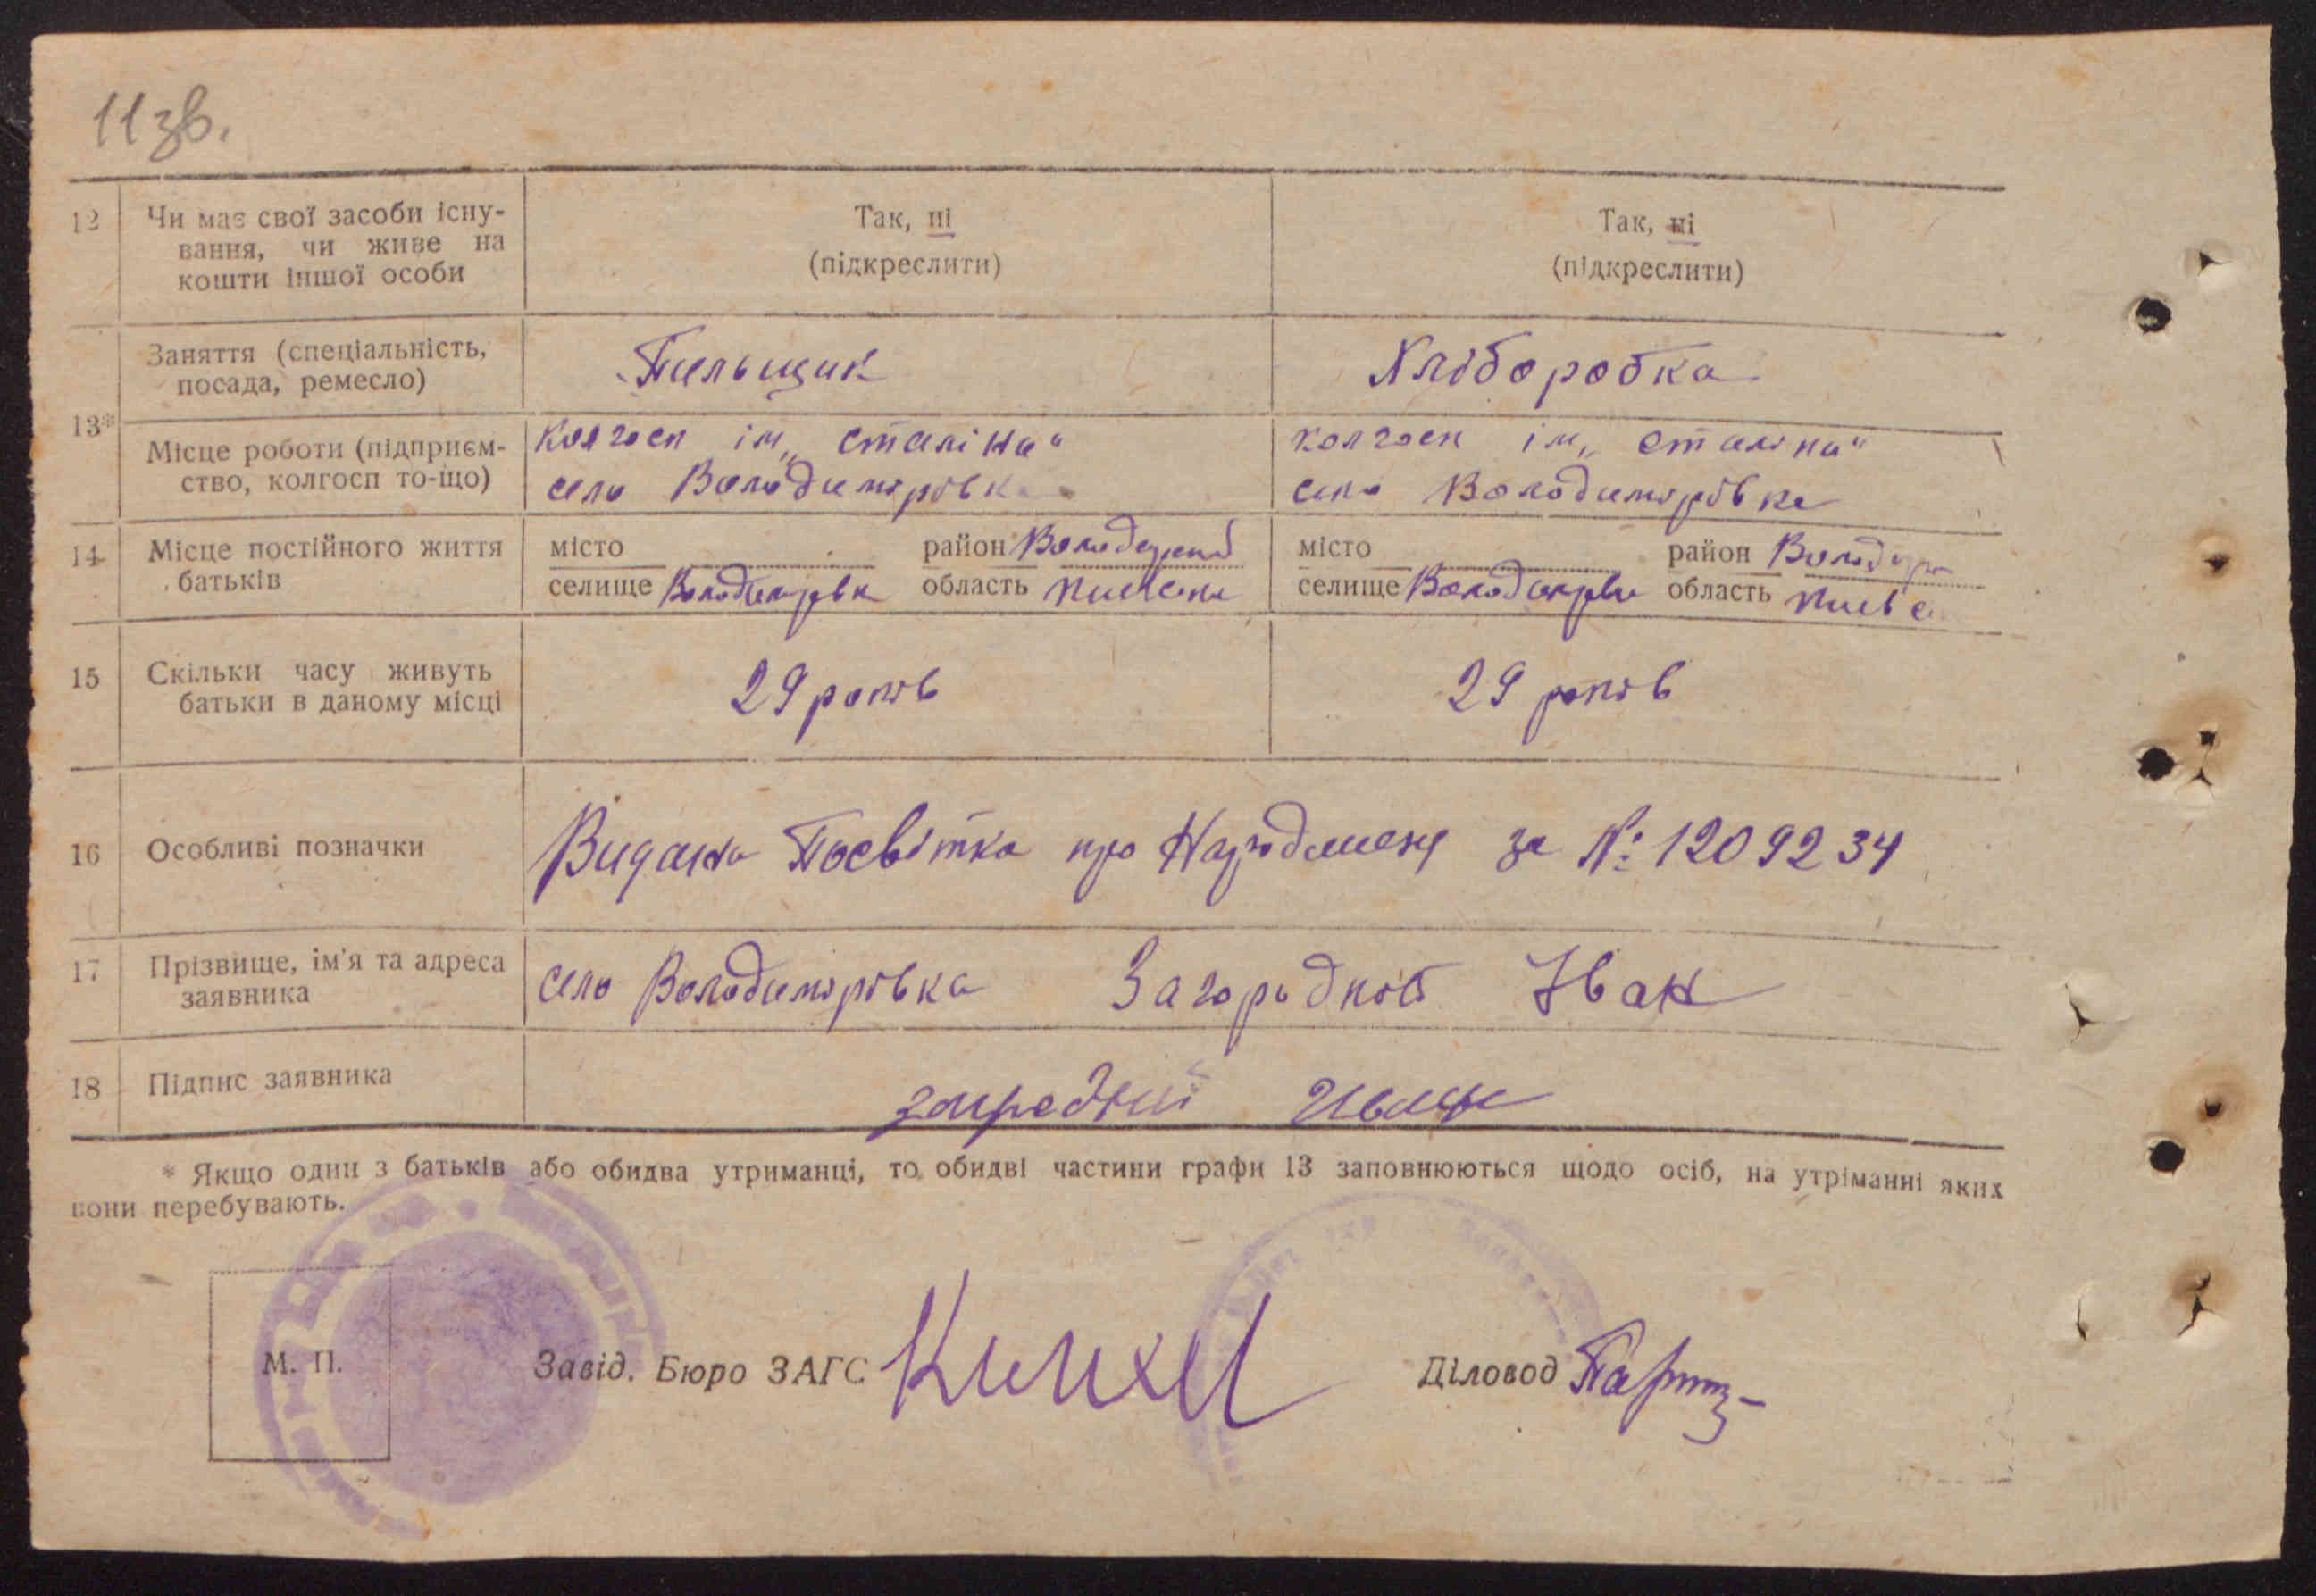 11 зв.
12 Чи має свої засоби існу- Так, ні Так, ні
вання, чи живе на (підкреслити) (підкреслити)
кошти іншої особи
13* Заняття (спеціальність, Пильщик Хліборобка
посада, ремесло)
Місце роботи (підприєм- колгосп ім „Сталіна“ колгосп ім „Сталіна“
ство, колгосп то-що) село Володимірівка село Володимірівка
14 Місце постійного життя місто район місто район
батьків селище область селище область
15 Скільки часу живуть 29 років 29 років
батьки в даному місці
16 Особливі позначки Видана Посвітка про за №: 1209234
17 Прізвище, ім'я та адреса село Володимірівка Загородній Іван
заявника
18 Підпис заявника
* Якщо один з батьків або обидва утриманці, то обидві частини графи 13 заповнюються щодо осіб, на утріманні яких
вони перебувають.
М. П. Завід. Бюро ЗАГС Діловод